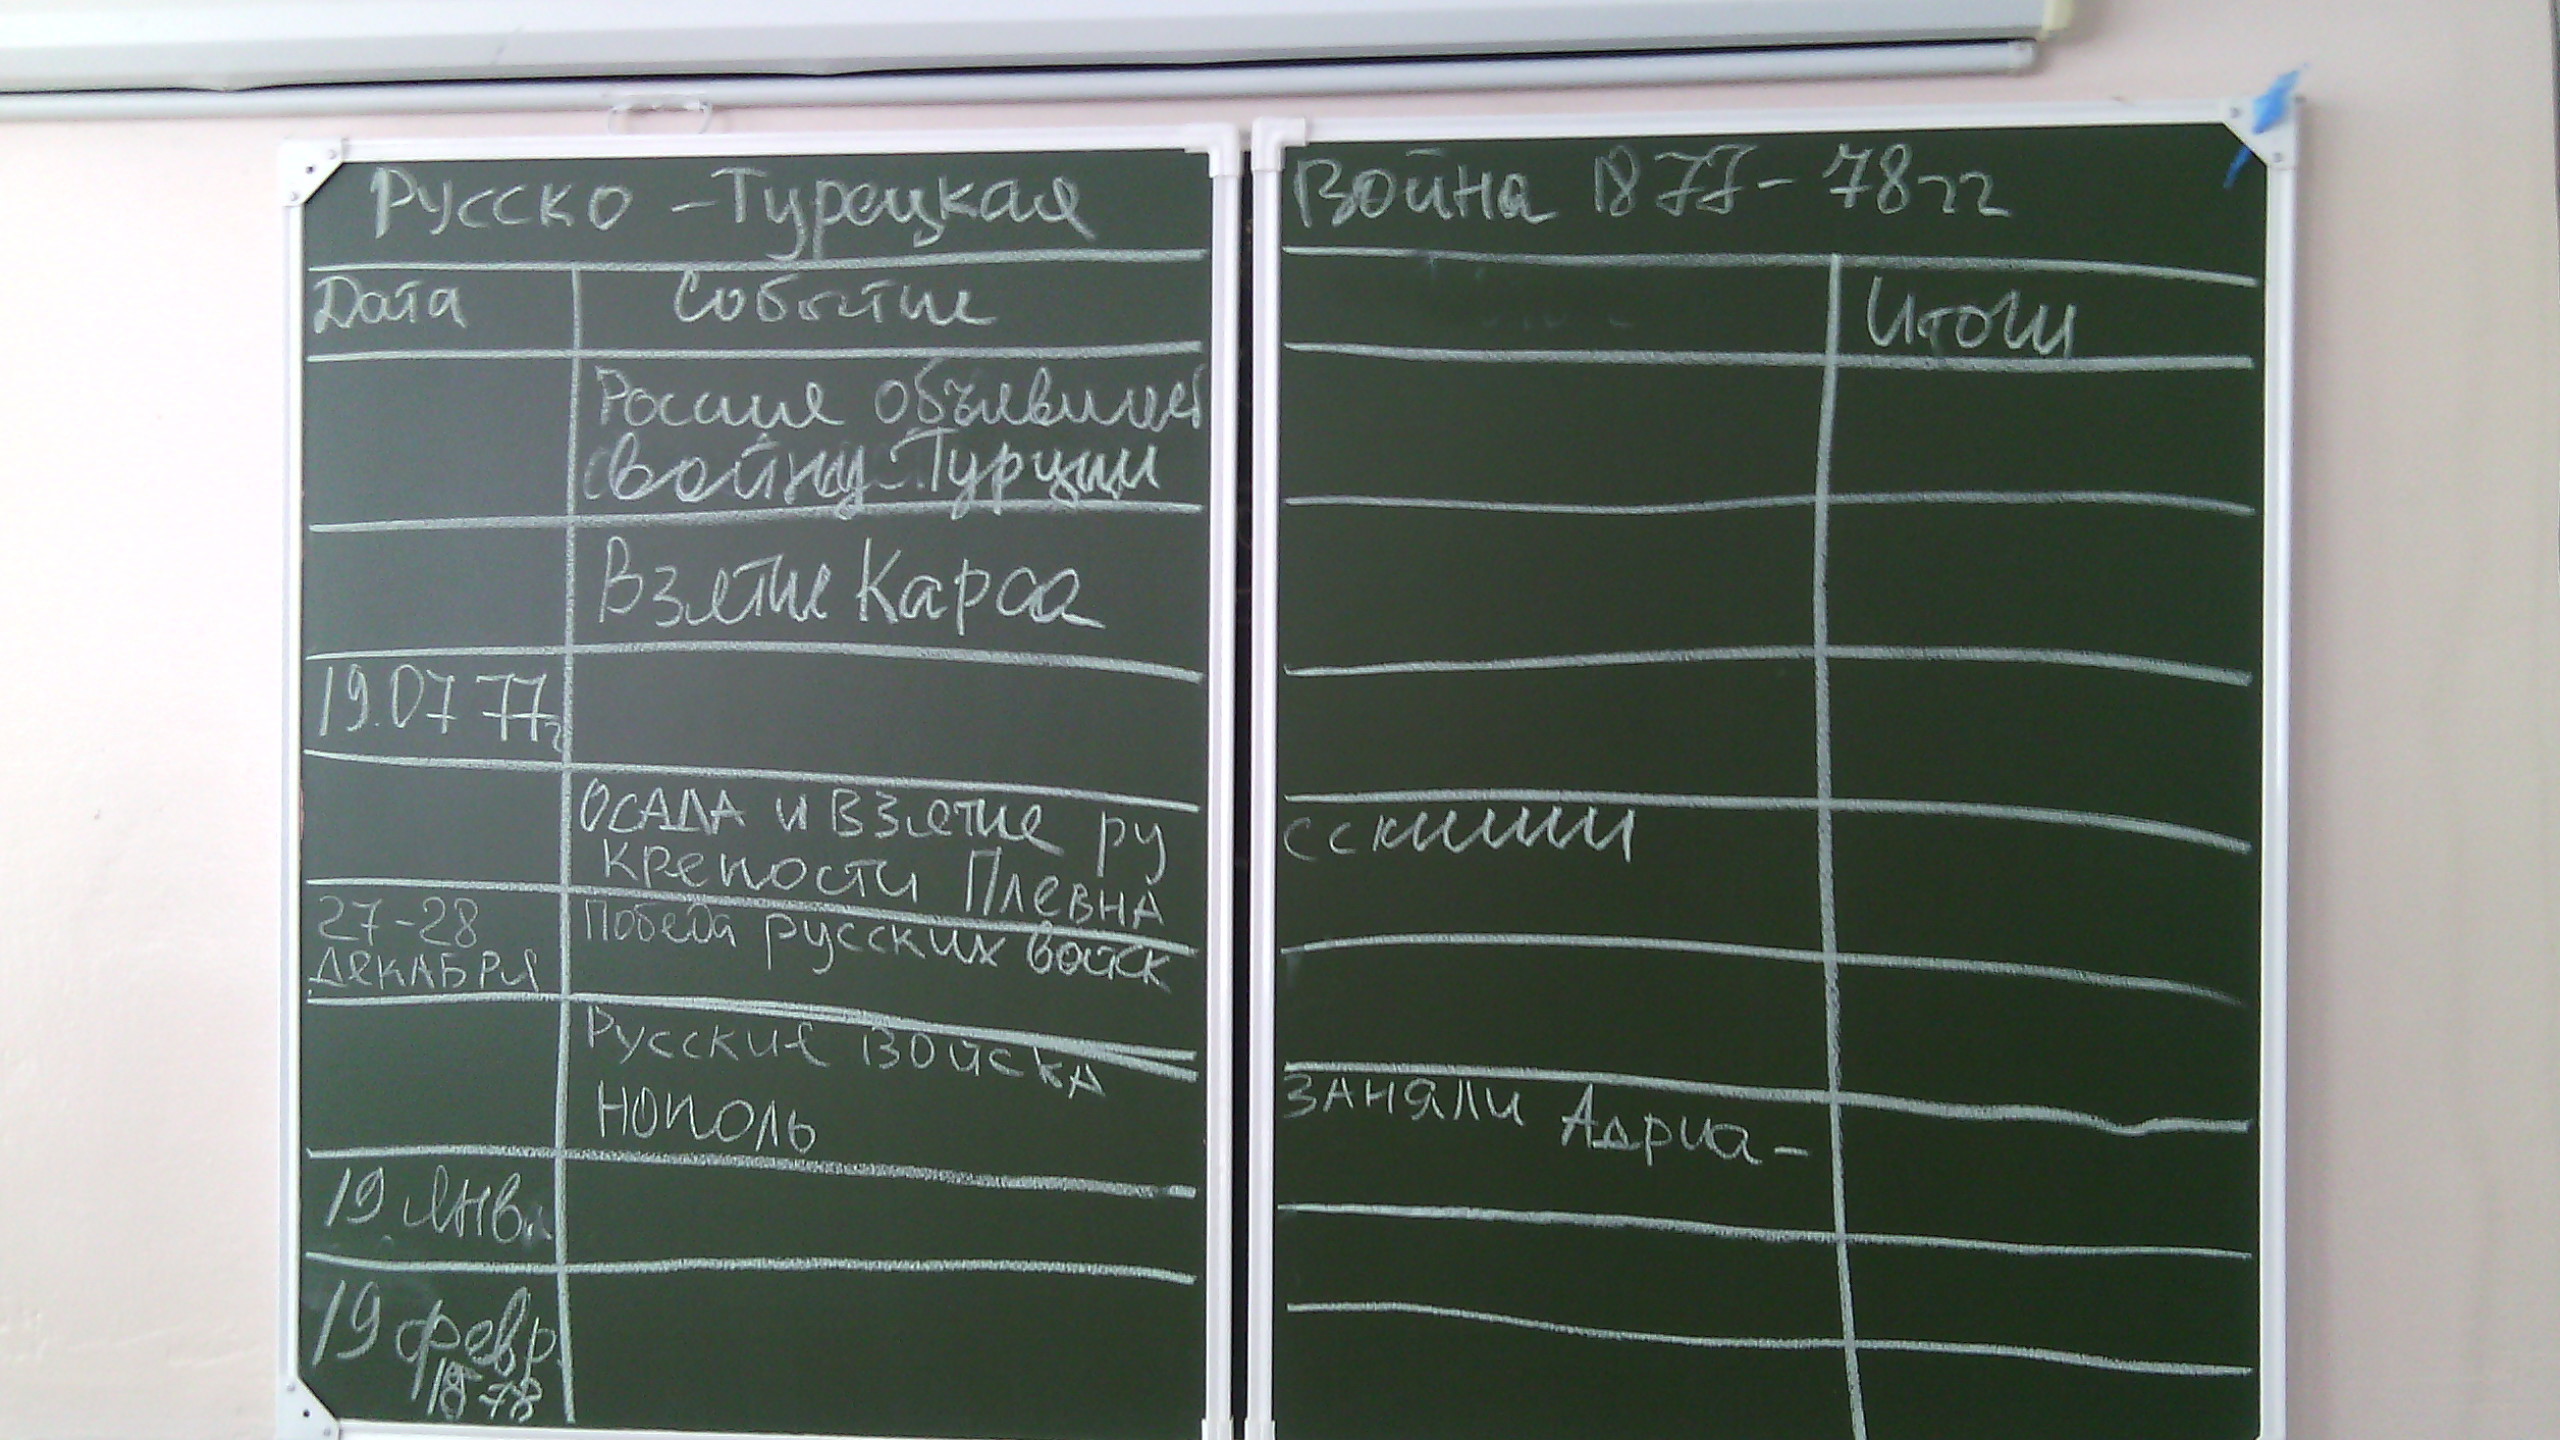 Русско-Турецкая Война 1877-78гг
Дата Событие Итоги
Россия объявляет
войну Турции
Взятие Карса
19.07 77г
Осада и взятие русскими
крепости Плевна
27-28 Победа русских войск
декабря
Русские войска заняли Адриа-
нополь
19 янв.
19 февр.
1878